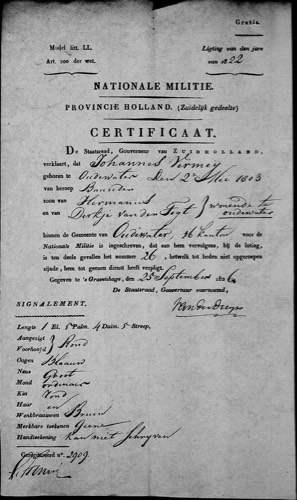 Gratis.
Model litt. LL.
Ligting van den jare
Art. 100 der wet.
van 1822
NATIONALE MILITIE.
PROVINCIE HOLLAND. (Zuidelijk gedeelte)
CERTIFICAAT.
De Staatsraad, Gouverneur van ZUIDHOLLAND,
verklaart, dat Johannes Vermey
geboren te Oudewater Den 2e Mei 1803
van beroep
zoon van Hermanus
en van Dirkje van den Togt } wonende te oudewater
binnen de Gemeente van Oudewater, 16 Kanton voor de
Nationale Militie is ingeschreven, dat aan hem vervolgens, bij de loting,
is ten deele gevallen het nommer 26, hetwelk tot heden niet opgeroepen
zijnde, hem tot geenen dienst heeft verpligt.
Gegeven te 's Gravenhage, den 25 September 1826
De Staatsraad, Gouverneur voornoemd,
SIGNALEMENT.
Lengte 1 El. 5 Palm. 4 Duim. 5 Streep.
Aangezigt
Voorhoofd } Rond
Oogen Blaauw
Neus Groot
Mond ordinair
Kin rond
Haar en
Wenkbraauwen Bruin
Merkbare teekenen Geene
Handteekening kan niet schryven
Geregistreerd n°. 2909.